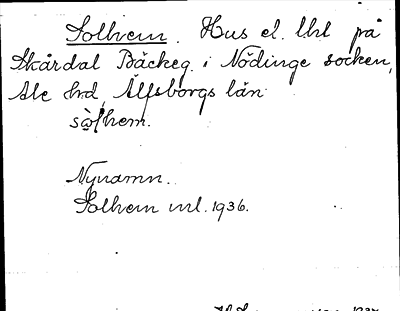 Solhem. Hus el. lht på
Skårdal Bäckeg. i Nödinge socken,
Ale hrd, Älfsborgs län
sòlhem.
Nynamn.
Solhem ml. 1936.